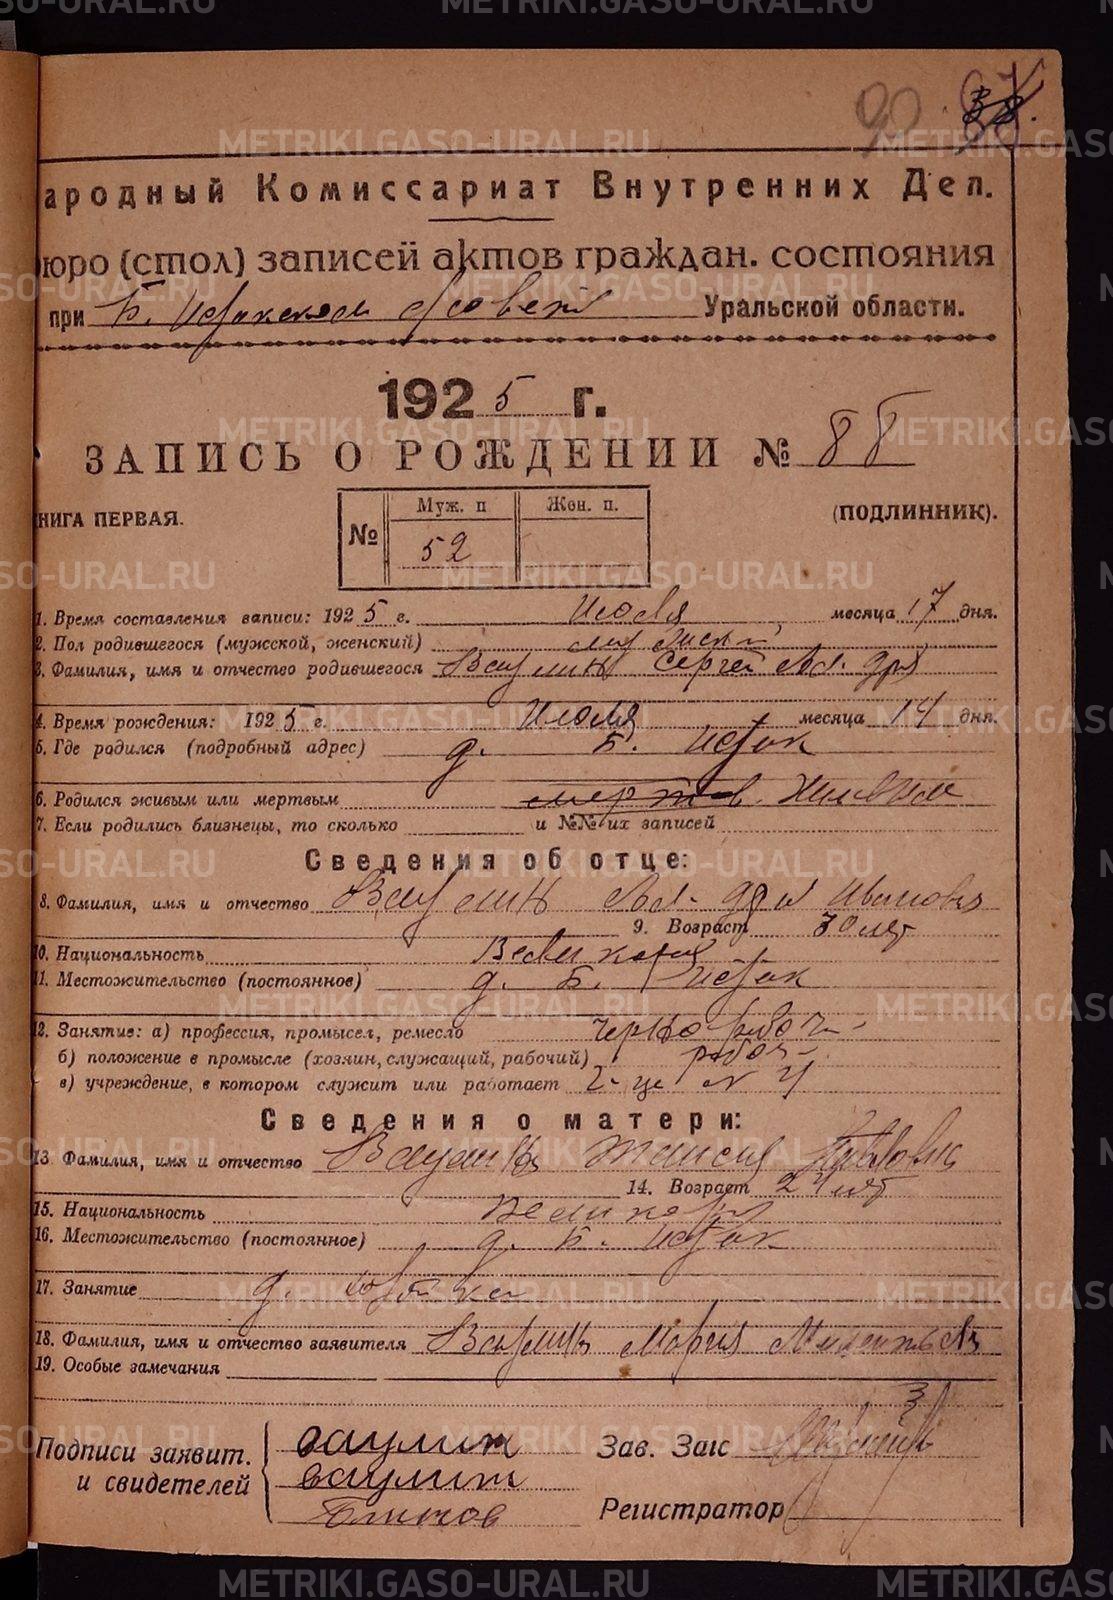 90
ародный Комиссариат Внутренних Дел.
юро (стол) записей актов граждан. состояния
при Б. Истокском Совет Уральской области.
1925 г.
ЗАПИСЬ О РОЖДЕНИИ № 88
НИГА ПЕРВАЯ.
(ПОДЛИННИК).
№ Муж. п Жен. п.
52
1. Время составления записи: 1925 г. Июля месяца 17 дня.
2. Пол родившегося (мужсской, женский) мужской
3. Фамилия, имя и отчество родившегося Ваулин Сергей
4. Время рождения: 1925 г. Июля месяца 14 дня.
5. Где родился (подробный адрес) д. Б. Исток
6. Родился живым или мертвым Живым
7. Если родились близнецы, то сколько и №№ их записей
Сведения об отце:
8. Фамилия, имя и отчество Ваулин Иванович
9. Возраст 30 лет
10. Национальность
11. Местожительство (постоянное) д. Б. Исток
12. Занятие: а) профессия, промысел, ремесло Чернорабоч-
б) положение в промысле (хозяин, служащий, рабочий) рабоч-
в) учреждение, в котором служит или работает
Сведения о матери:
13 Фамилия, имя и отчество Ваулина Таисия Павловна
14. Возраст 24 лет
15. Национальность
16. Местожительство (постоянное) д. Б. Исток
17. Занятие
18. Фамилия, имя и отчество заявителя Ваулина Мария
19. Особые замечания
Подписи заявит. и свидетелей
ваулин
ваулин
Зав. Загс
Регистратор
METRIKI.GASO-URAL.RU